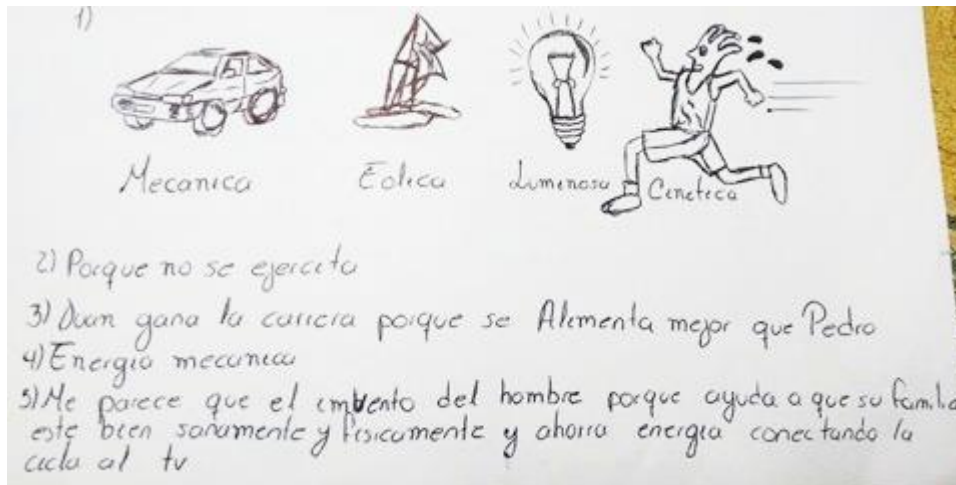 1)
Mecanica Eolica Luminosa Cenetica
2) Porque no se ejercita
3) Duan gana la carrera porque se Alimenta mejor que Pedro
4) Energia mecanica
5) Me parece que el imbento del hombre porque ayuda a que su familia
este bien sanamente y fisicamente y ahorra energia conectando la
cicla al tv